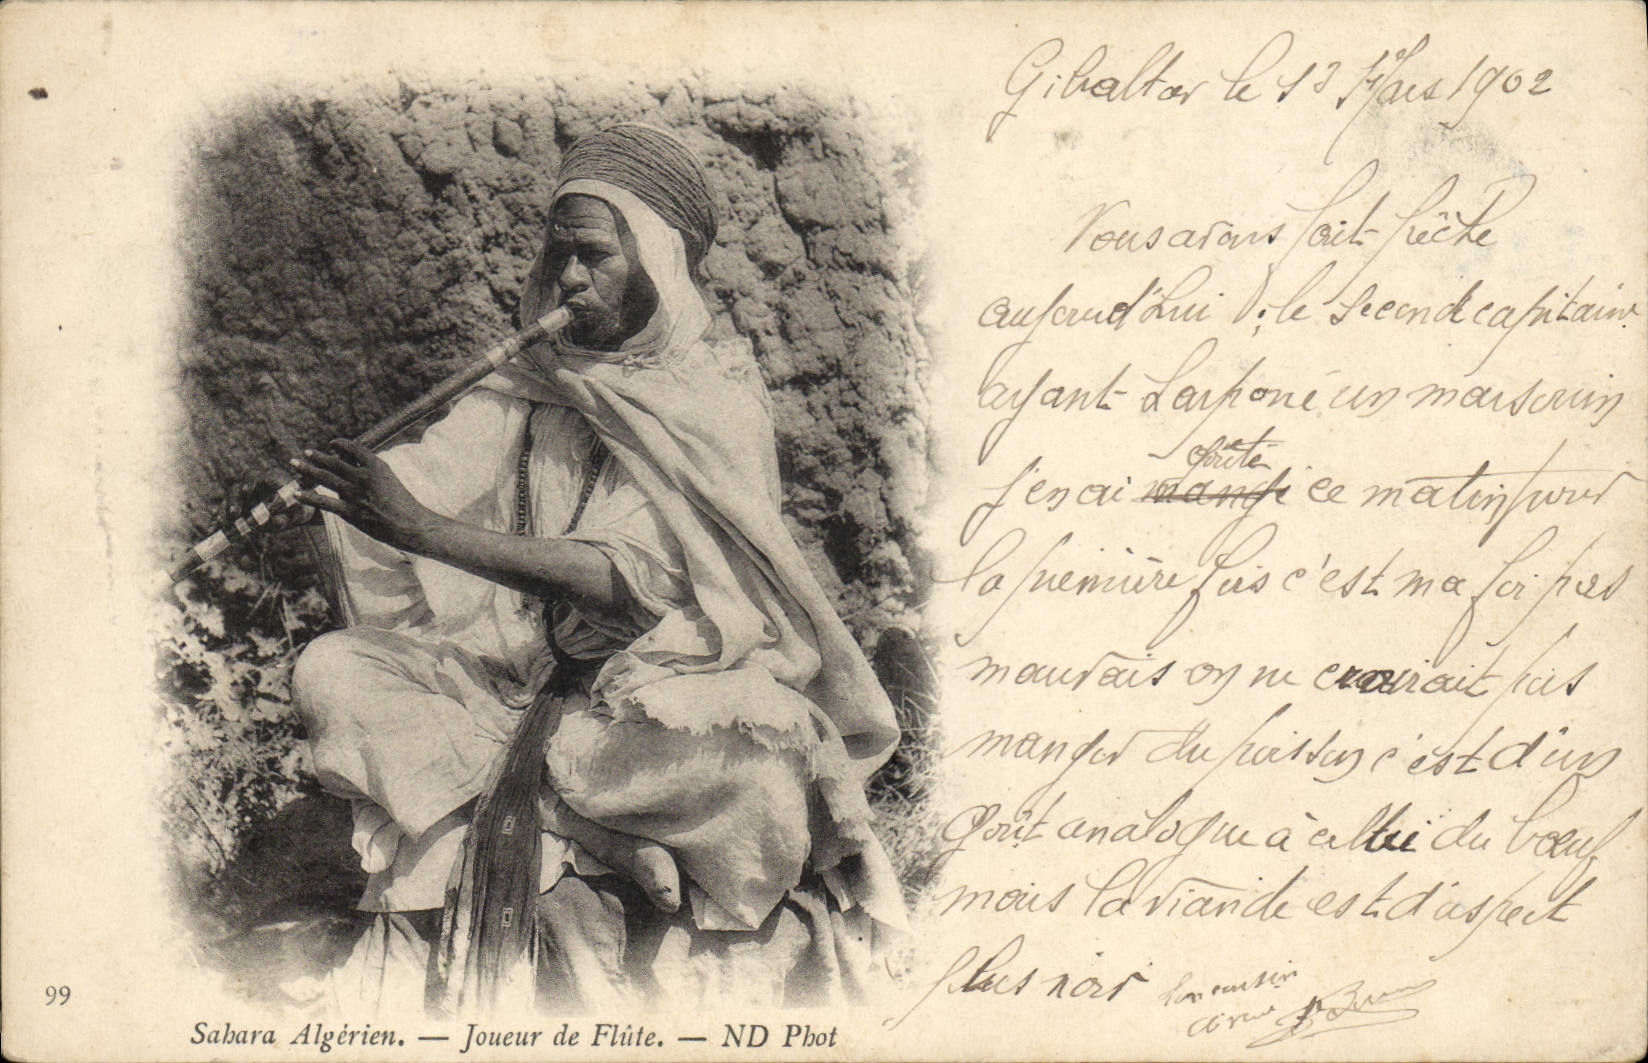 Gibraltar le 13 Mars 1902
Nous avons fait pêche
aujourd'hui ; le second capitaine
ayant harponé un marsouin
j'en ai mangé goûté ce matin pour
la première fois c'est ma foi pas
mauvais on ne croirait pas
manger du poisson c'est d'un
goût analogue à celui du bœuf
mais la viande est d'aspect
plus noir
Ton cousin
99
Sahara Algérien. — Joueur de Flûte. — ND Phot